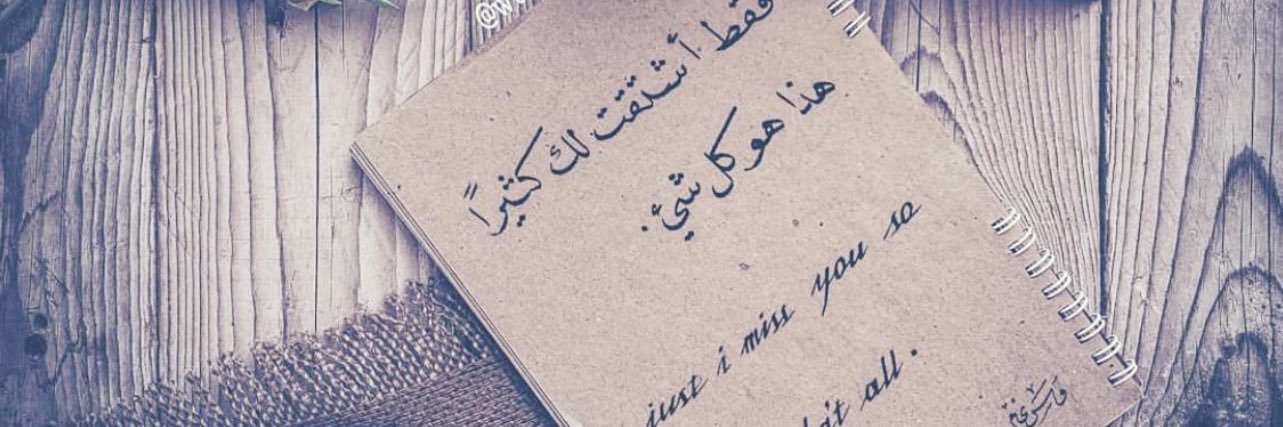 فقط أشتقت لك كثيرًا
هذا هو كل شيئ.
just i miss you so
all.